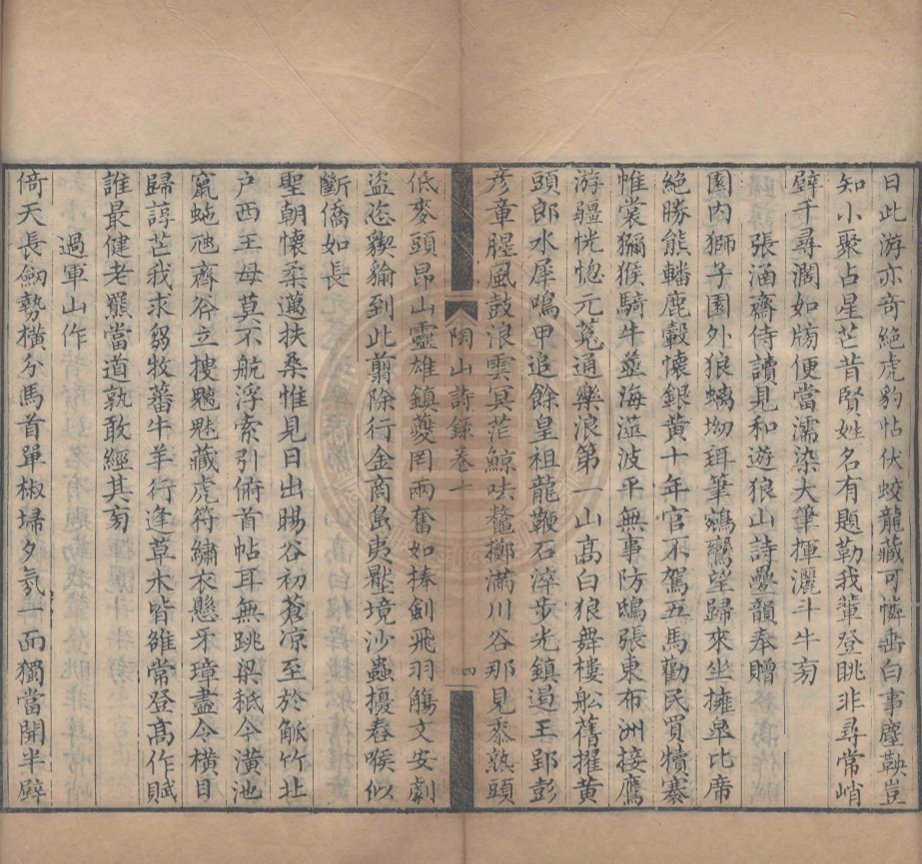 日此游亦奇絕虎豹帖伏蛟龍藏可憐垂白事塵鞅豈
知小聚占星芒昔賢姓名有題勒我輩登眺非尋常峭
壁千尋濶如牓便當濡染大筆揮灑斗牛旁
張涵齋侍讀見和遊狼山詩疊韻奉贈
園內獅子園外狼螭坳珥筆鵷鸞望歸來坐擁皐比席
絕勝熊轓鹿轂懷銀黃十年官不駕五馬勸民買犢褰
帷裳獼猴騎牛並海澨波平無事防鴟張東布洲接鷹
游疆恍惚元菟通樂浪第一山高白狼舞樓船舊擢黃
頭郎水犀鳴甲追餘皇祖龍鞭石淬步光鎮遏王郢彭
彥章腥風鼓浪雲冥茫鯨呿鼇擲滿川谷那見黍熟頭
陶山詩錄卷十
四
低麥頭昂山靈雄鎮夔罔兩奮如捧劍飛羽觴文安劇
盜恣貏貐到此翦除行金商島夷壓境沙蟲擾舂喉似
斷僑如長
聖朝懷柔邁扶桑惟見日出暘谷初蒼涼至於觚竹北
户西王母莫不航浮索引俯首帖耳無跳梁秪今潢池
竄虵虺齋谷立搜魑魅藏虎符繡衣懸牙璋盡令橫目
歸諄芒我求芻牧蕃牛羊行逢草木皆雒常登高作賦
誰最健老羆當道孰敢經其旁
過軍山作
倚天長劔勢橫分馬首單椒埽夕氛一面獨當開半壁